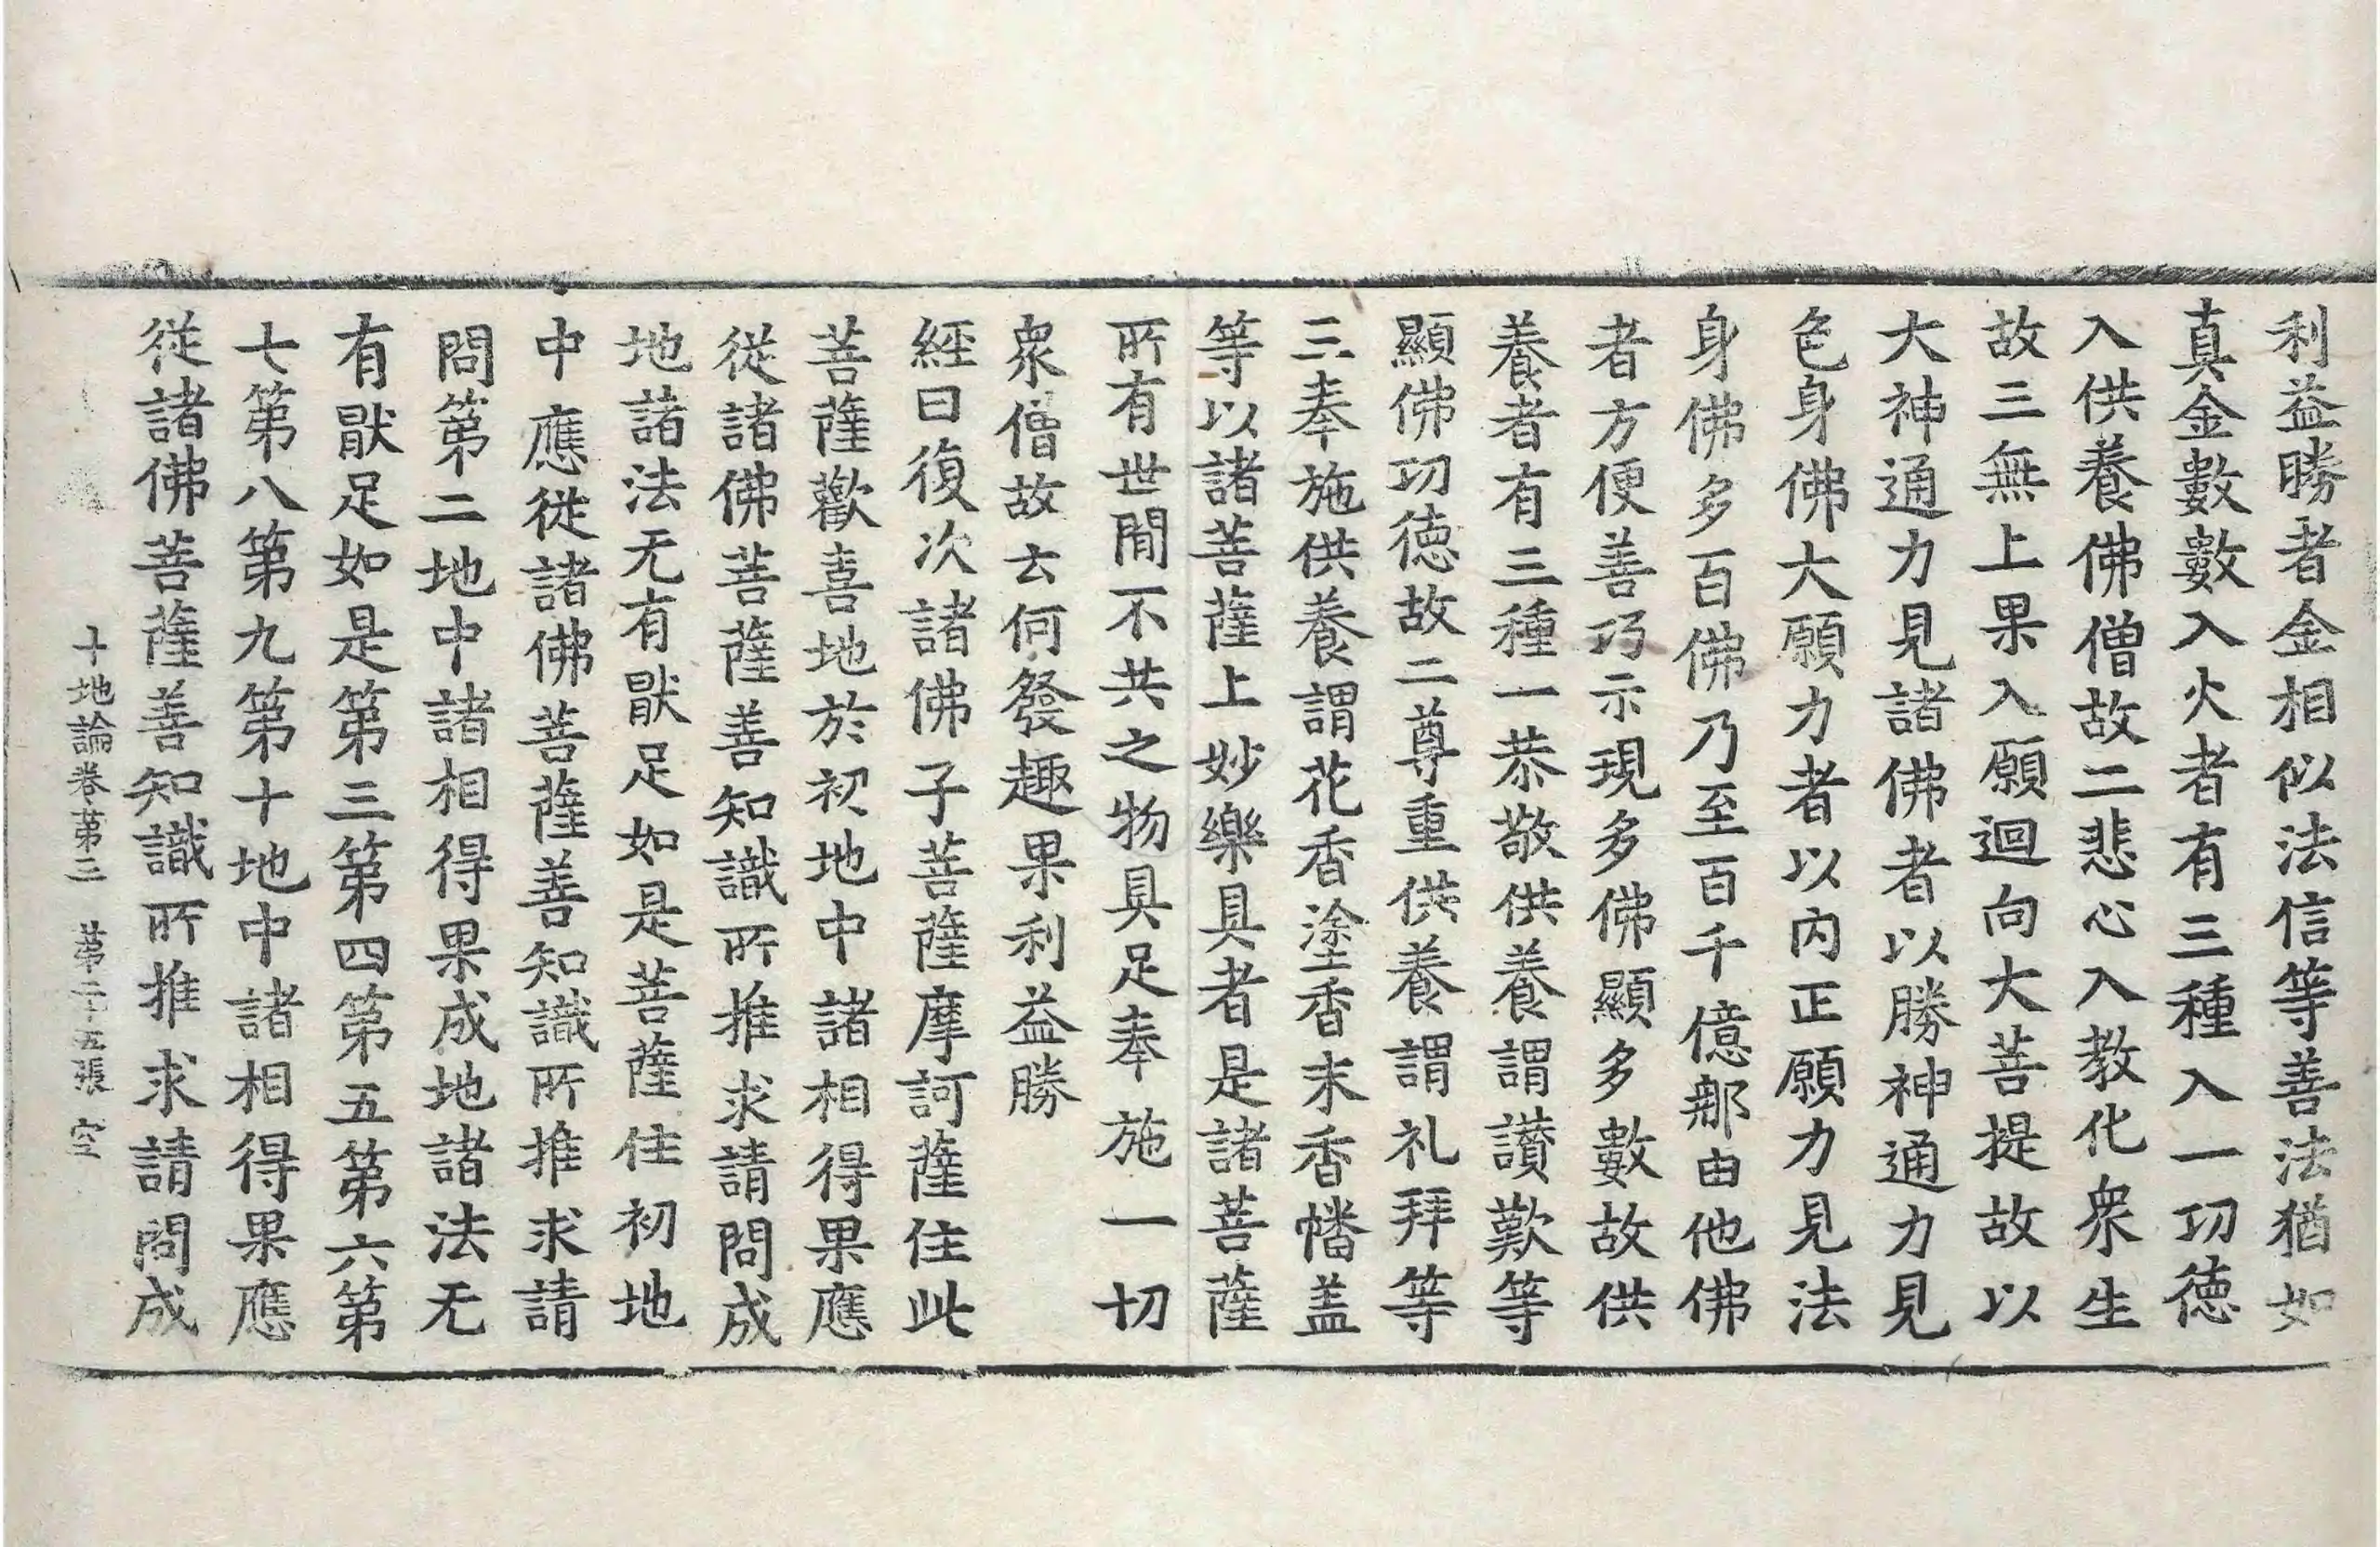 利益勝者金相似法信等善法猶如
真金數數入火者有三種入一功德
入供養佛僧故二悲心入教化衆生
故三無上果入願迴向大菩提故以
大神通力見諸佛者以勝神通力見
色身佛大願力者以內正願力見法
身佛多百佛乃至百千億那由他佛
者方便善巧示現多佛顯多數故供
養者有三種一恭敬供養謂讃歎等
顯佛功德故二尊重供養謂礼拜等
三奉施供養謂花香塗香末香幡盖
等以諸菩薩上妙樂具者是諸菩薩
所有世間不共之物具足奉施一切
衆僧故云何發趣果利益勝
經曰復次諸佛子菩薩摩訶薩住此
菩薩歡喜地於初地中諸相得果應
從諸佛菩薩善知識所推求請問成
地諸法无有猒足如是菩薩住初地
中應從諸佛菩薩善知識所推求請
問第二地中諸相得果成地諸法无
有猒足如是第三第四第五第六第
七第八第九第十地中諸相得果應
從諸佛菩薩善知識所推求請問成
十地論卷第三 第二十五張 空